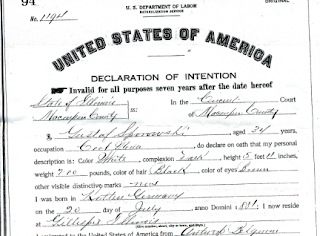 94
U. S. DEPARTMENT OF LABOR
NATURALIZATION SERVICE
ORIGINAL
No. 1194
UNITED STATES OF AMERICA
DECLARATION OF INTENTION
Invalid for all purposes seven years after the date hereof
State of Illinois
Macoupin County
ss:
In the Circuit Court
of Macoupin County
I, Gustof, aged 34 years,
occupation, do declare on oath that my personal
description is: Color White, complexion Dark, height 5 feet 11 inches,
weight 200 pounds, color of hair Black, color of eyes Brown
other visible distinctive marks none
I was born in Germany
on the 20 day of July, anno Domini 1881, I now reside
at Gillespie Illinois
to the United States of America from Antwerp Belgium